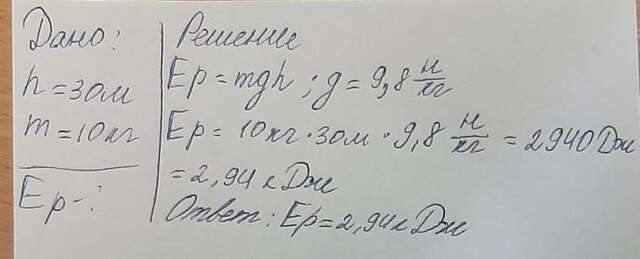 Дано:
h = 30м
m = 10кг
Ep - ?
Решение
Ep = mgh ; g = 9,8 н/кг
Ep = 10кг · 30м · 9,8 н/кг = 2940 Дж
= 2,94 кДж
Ответ: Ep = 2,94 кДж